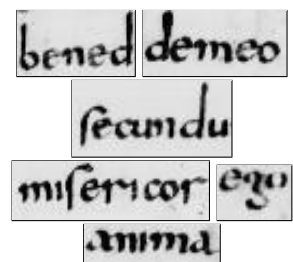 bened demeo
secundu
misericor ego
anima